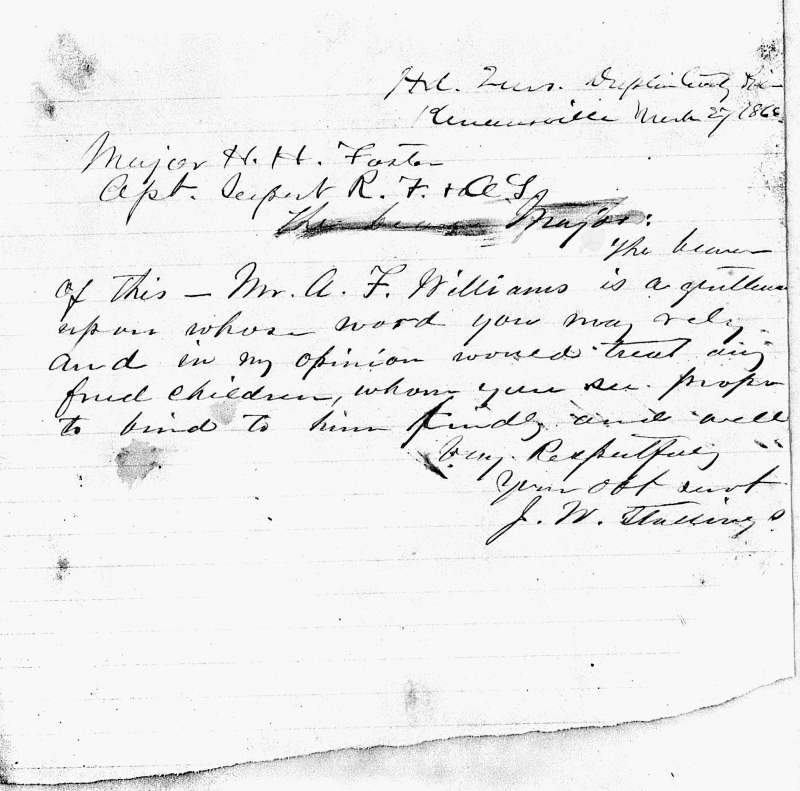 Hd. Qurs. Duplin County
Kenansville March 27 1866
Major H. H. Foster
Apt. Supert R. F. & A L
the bearer Major:
the bearer
of this — Mr. A. F. Williams is a gentleman
upon whose word you may rely
and in my opinion would treat any
freed children, whom you see proper
to bind to him kindly and well
Very Respectfuly
Your obt servt
J. W. Stallings